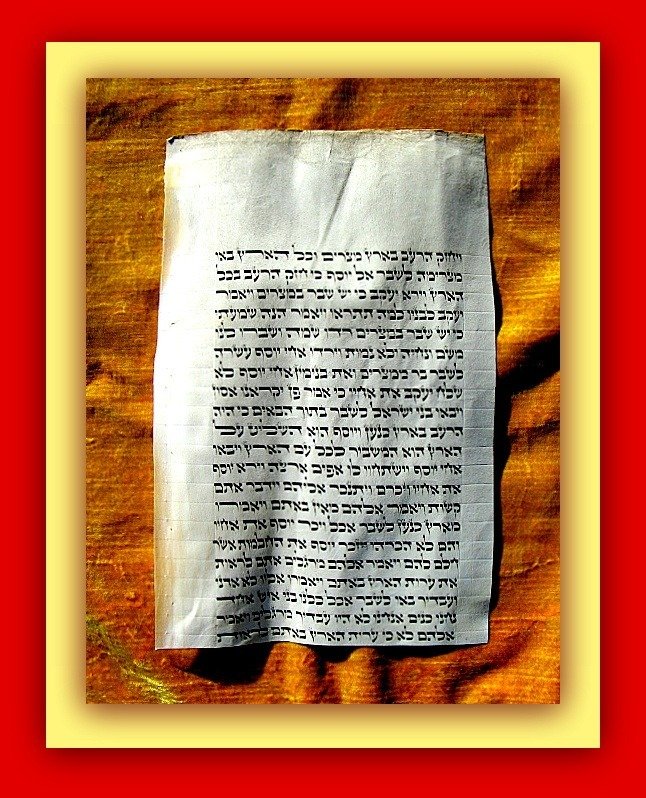 ויחזק הרעב בארץ מצרים וכל הארץ באו
מצרימה לשבר אל יוסף כי חזק הרעב בכל
הארץ וירא יעקב כי יש שבר במצרים ויאמר
יעקב לבניו למה תתראו ויאמר הנה שמעתי
כי יש שבר במצרים רדו שמה ושברו לנו
משם ונחיה ולא נמות וירדו אחי יוסף עשרה
לשבר בר ממצרים ואת בנימין אחי יוסף לא
שלח יעקב את אחיו כי אמר פן יקראנו אסון
ויבאו בני ישראל לשבר בתוך הבאים כי היה
הרעב בארץ כנען ויוסף הוא השליט על
הארץ הוא המשביר לכל עם הארץ ויבאו
אחי יוסף וישתחוו לו אפים ארצה וירא יוסף
את אחיו ויכרם ויתנכר אליהם וידבר אתם
קשות ויאמר אלהם מאין באתם ויאמרו
מארץ כנען לשבר אכל ויכר יוסף את אחיו
והם לא הכרהו ויזכר יוסף את החלמות אשר
חלם להם ויאמר אלהם מרגלים אתם לראות
את ערות הארץ באתם ויאמרו אליו לא אדני
ועבדיך באו לשבר אכל כלנו בני איש אחד
נחנו כנים אנחנו לא היו עבדיך מרגלים ויאמר
אלהם לא כי ערות הארץ באתם לראות